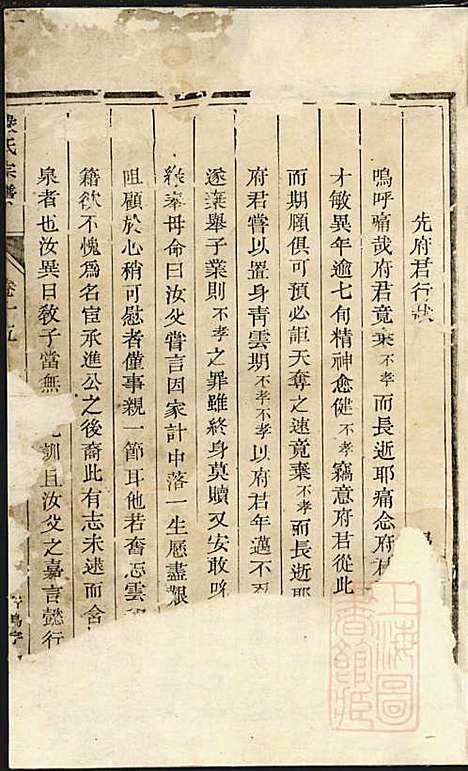 先府君行狀
嗚呼痛哉府君竟棄不孝而長逝耶痛念府君
才敏異年逾七旬精神愈健不孝竊意府君從此
而期頤俱可預必詎天奪之速竟棄不孝而長逝耶
府君嘗以置身青雲期不孝不孝以府君年邁不忍
遂棄舉子業則不孝之罪雖終身莫贖又安敢
奉母命曰汝父嘗言因家計中落一生歷盡艱
阻顧於心稍可慰者僅事親一節耳他若奮志雲
籍欲不愧為名宦承進公之後裔此有志未逮而含
泉者也汝異日教子當無訓且汝父之嘉言懿行
氏宗譜
卷
五
上海圖書館藏